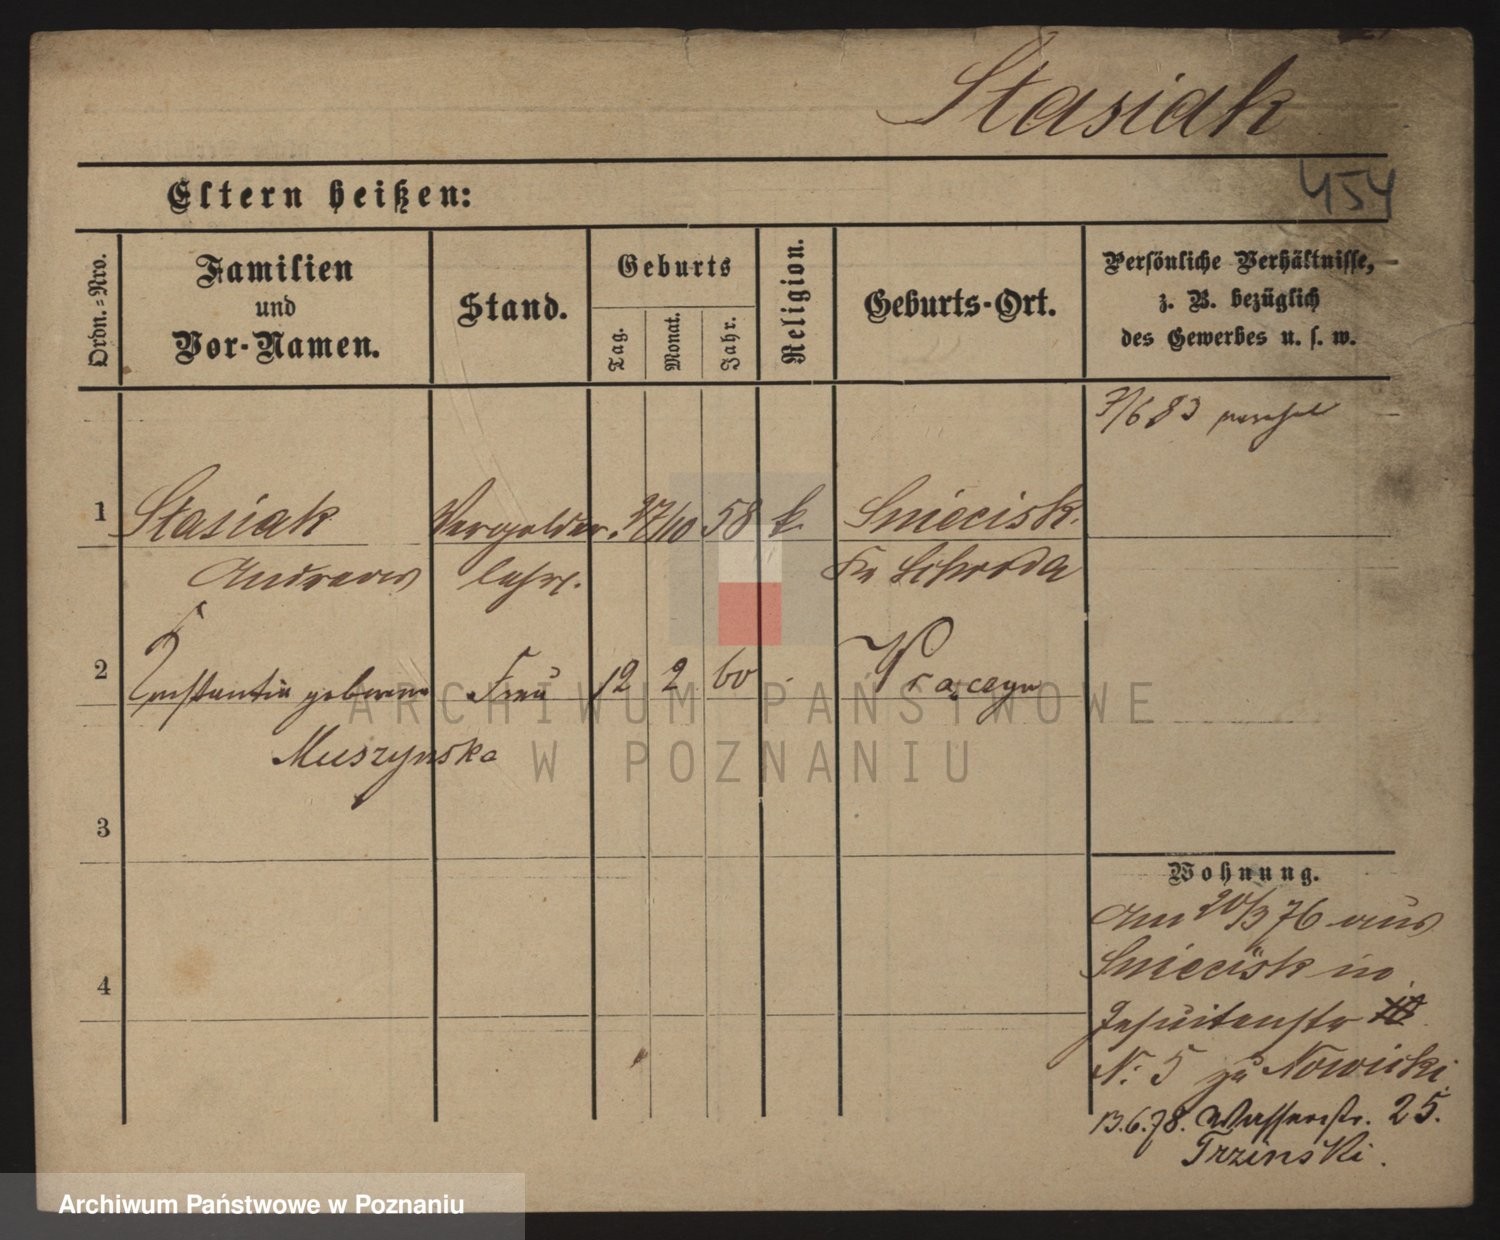 Stasiak
454
Eltern heißen:
Ordn.=Nro.
Familien
und
Vor-Namen.
Stand.
Geburts
Tag.
Monat.
Jahr.
Religion.
Geburts-Ort.
Persönliche Verhältnisse,
z. B. bezüglich
des Gewerbes u. s. w.
7/6 83
1 Stasiak Vergolder. 27/10 58 k. Sniecisk.
Andreas lehrl. Kr Schroda
2 Constantia geborene Frau 12 2 60
Muszynska
3
4
Wohnung.
Am 20/3 76 aus
Sniecisk in
Jesuitenstr
N. 5 zu Nowicki
13.6.78. Wasserstr. 25.
Trzinski.
ARCHIWUM PAŃSTWOWE
W POZNANIU
Archiwum Państwowe w Poznaniu